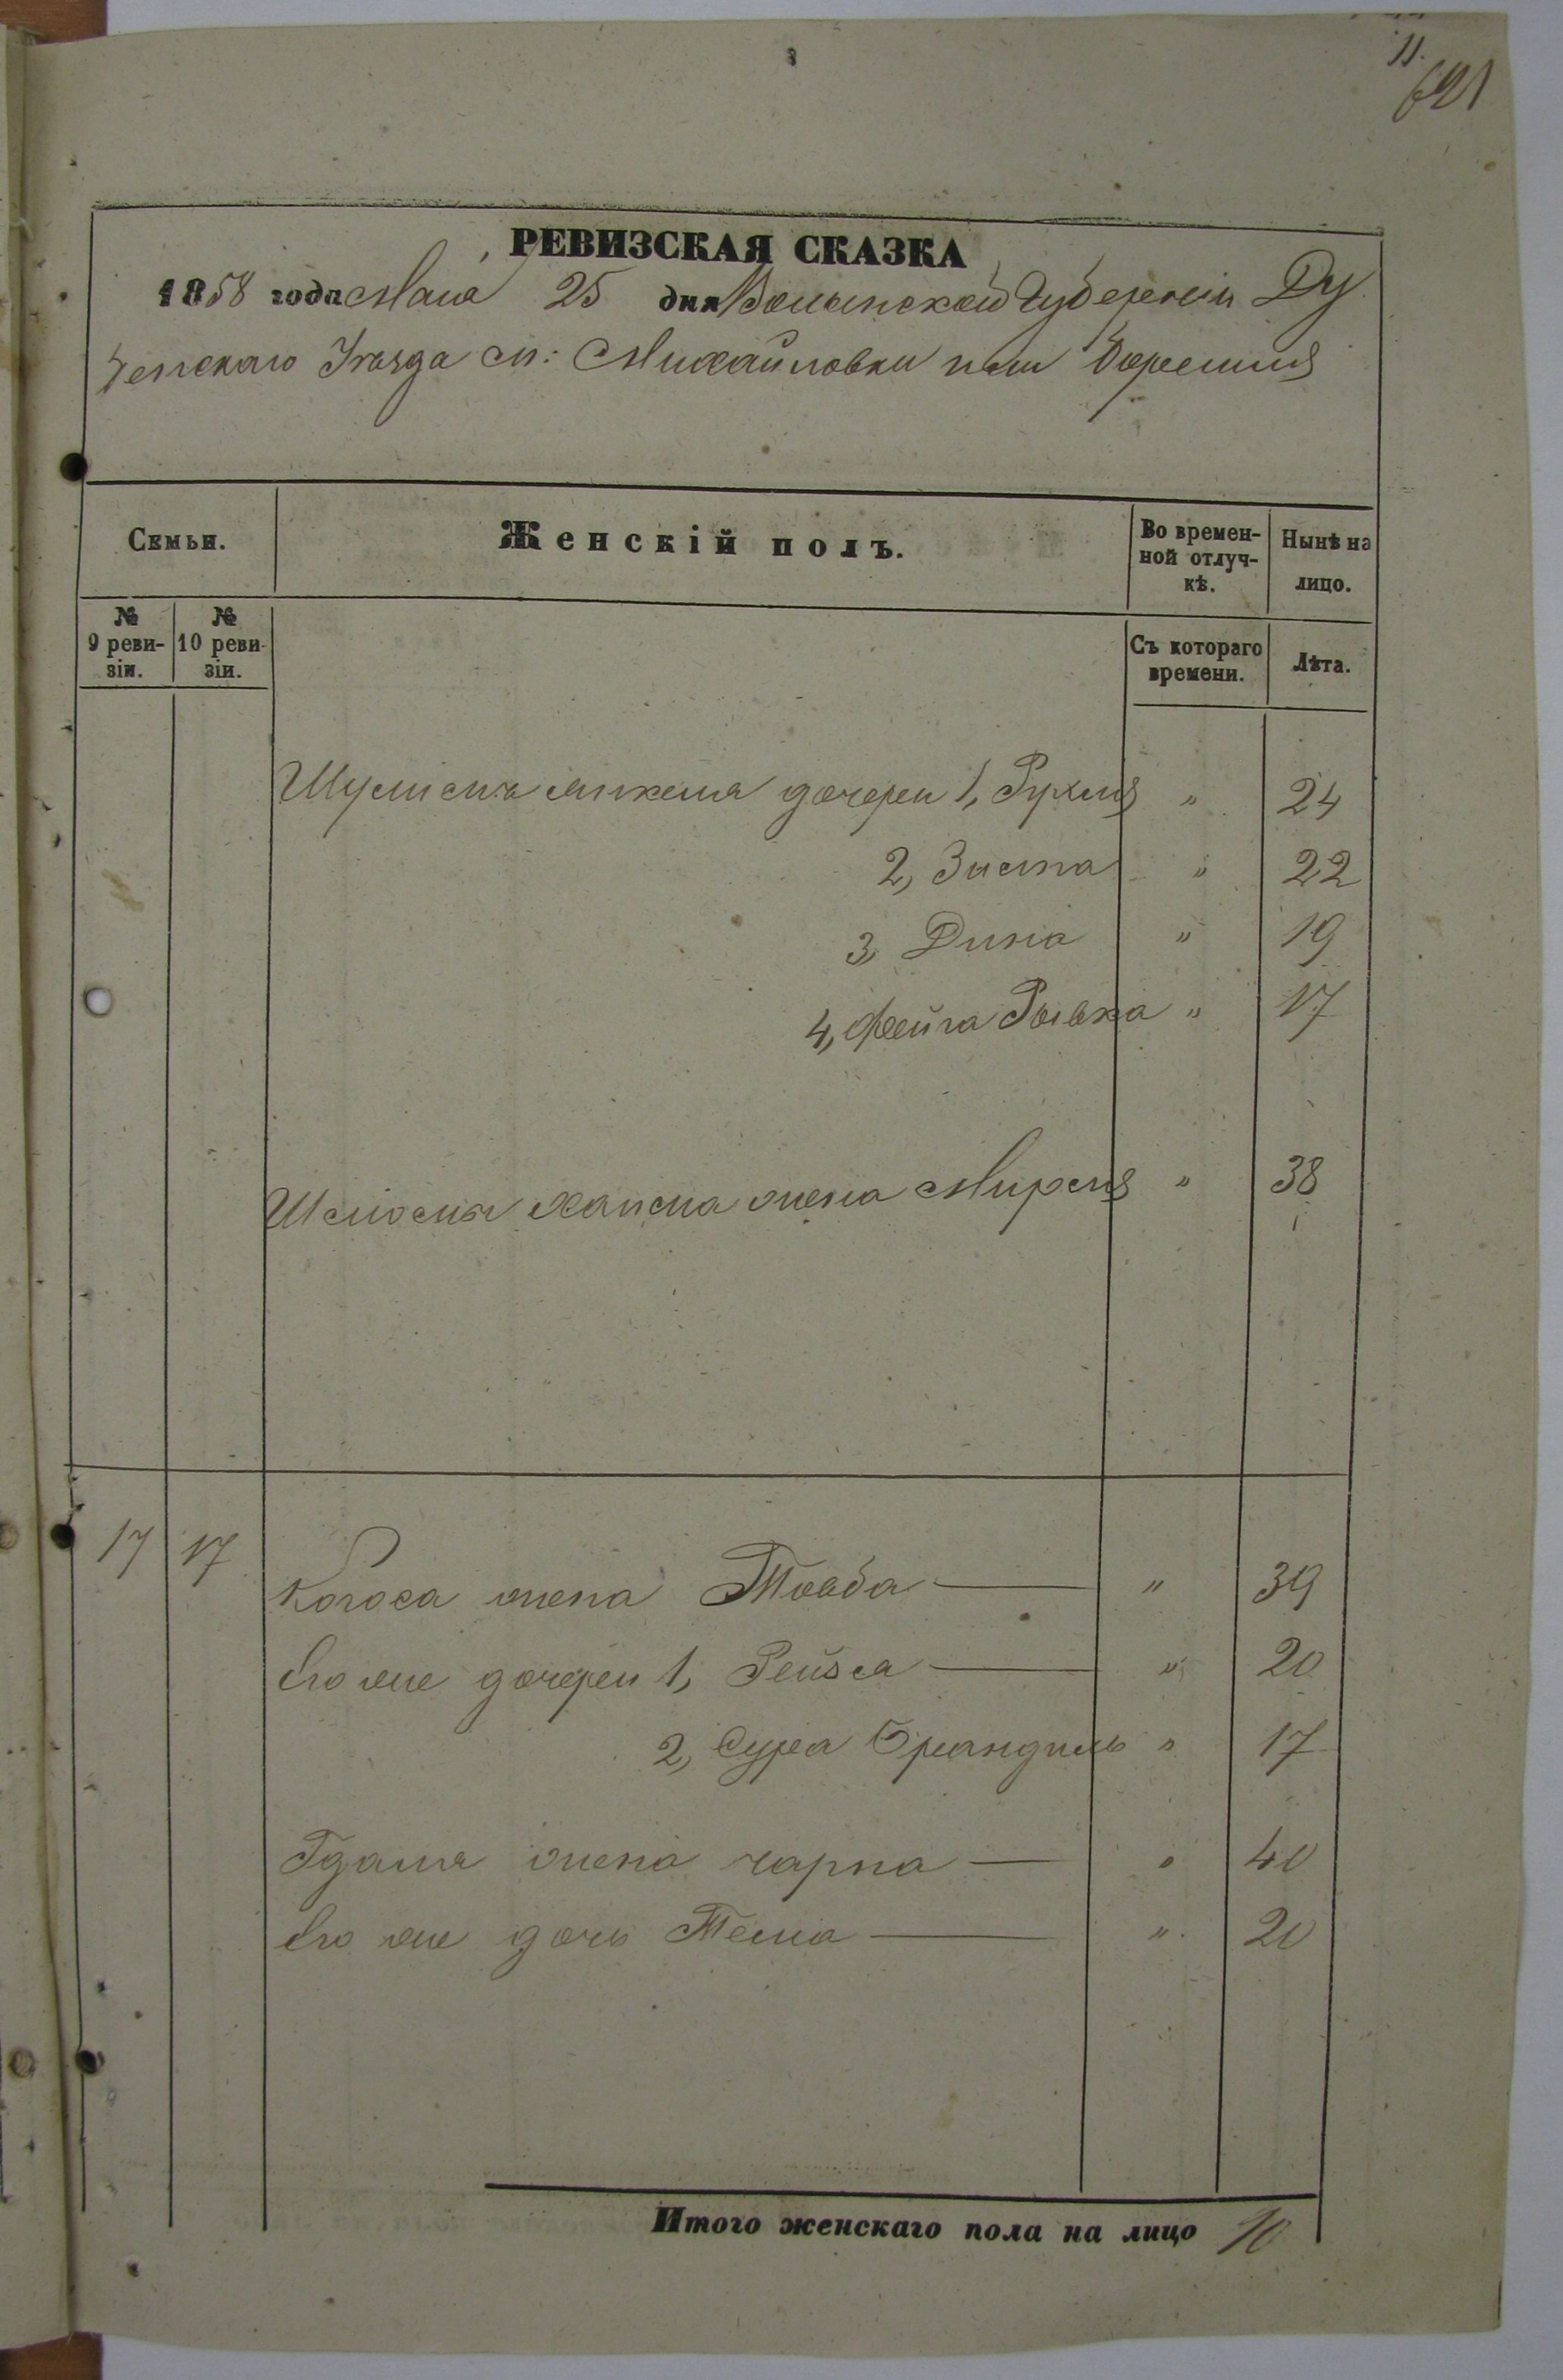 11.
621
РЕВИЗСКАЯ СКАЗКА
1858 года Мая 25 дня Волынской Губерніи Ду
бенскаго Уезда м: Михайловки
Семьи.
Женскій полъ.
Во времен-
ной отлуч-
кѣ.
Нынѣ на
лицо.
№
9 реви-
зіи.
№
10 реви-
зіи.
Съ котораго
времени.
Лѣта.
дочери 1, Рухля " 24
2, Злота " 22
3, Дина " 19
4, Фейга Рывка " 17
жена Мирля " 38
17 17 жена Товба " 39
Его же дочери 1, Рейза " 20
2, Сура Брандиль " 17
Гдаля жена Чарна " 40
Его же дочь Тема " 20
Итого женскаго пола на лицо 10